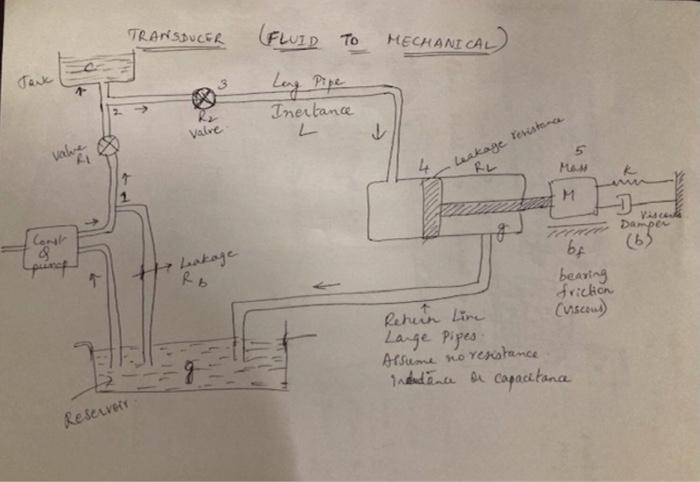 TRANSDUCER (FLUID TO MECHANICAL)
Tank
C
2
3
R2
Valve
Long Pipe
Inertance
L
Valve
R1
1
Const
Q
pump
Leakage
Rb
g
Reservoir
4
Leakage resistance
RL
g
5
Mass
M
K
Viscous
Damper
(b)
bf
bearing
friction
(viscous)
Return Line
Large Pipes.
Assume no resistance
or capacitance